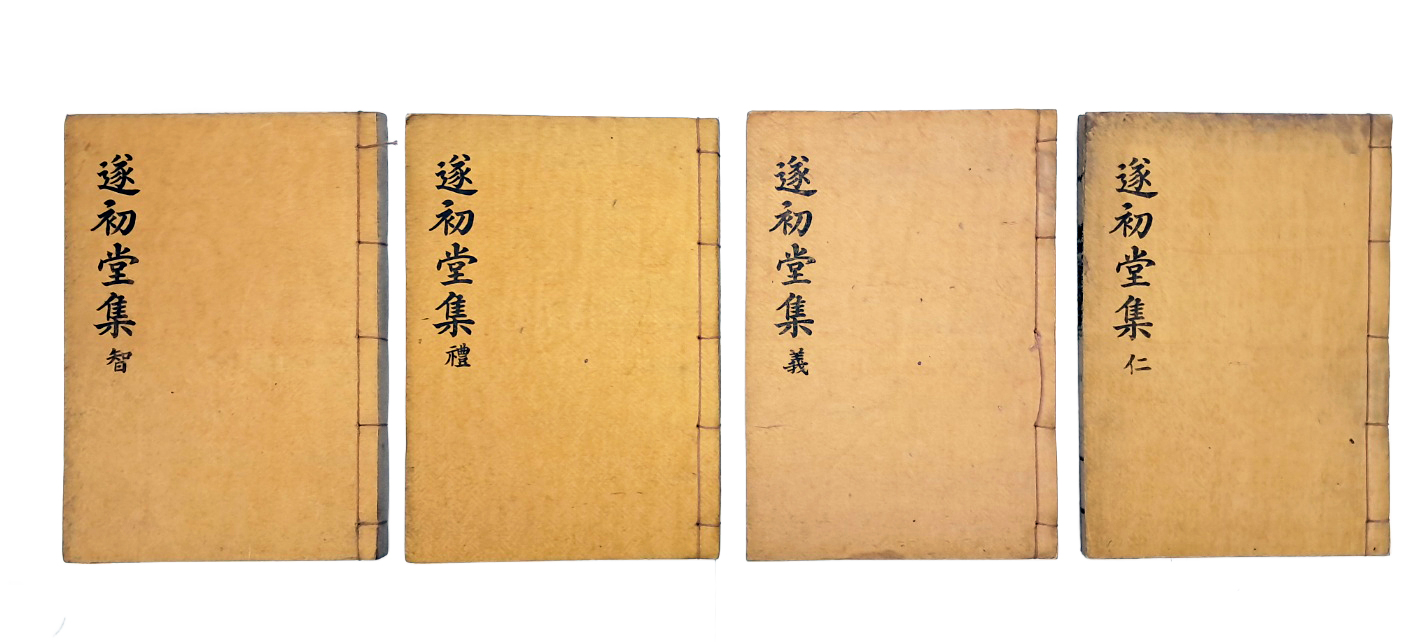 遂初堂集 仁
遂初堂集 義
遂初堂集 禮
遂初堂集 智